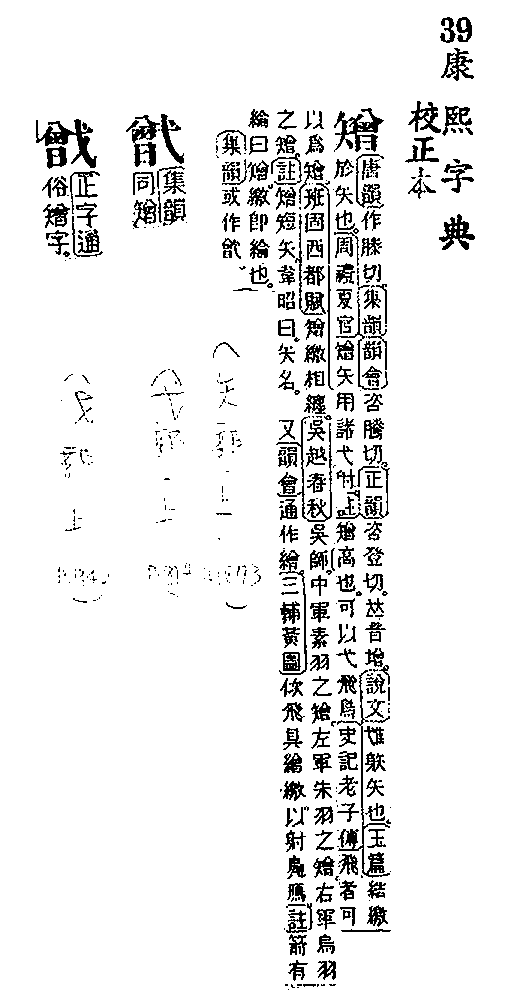 39
康熙字典
校正本
矰
唐韻作滕切集韻韻會咨騰切正韻咨登切𠀤音增說文隿躲矢也玉篇結繳
於矢也周禮夏官矰矢用諸弋射註矰高也可以弋飛鳥史記老子傳飛者可
以爲矰班固西都賦矰繳相纏吳越春秋吳師中軍素羽之矰左軍朱羽之矰右軍烏羽
之矰註矰短矢韋昭曰矢名 又韻會通作繒三輔黃圖佽飛具繒繳以射鳧鴈註箭有
綸曰矰繳卽綸也
集韻或作
集韻
同矰
正字通
俗矰字
(矢部·上
(弋部·上
(戈部上